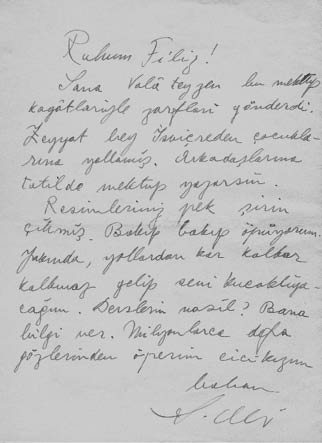 Ruhum Filiz!
Sana Valâ teyzen bu mektup
kağatlariyle zarfları gönderdi.
Zeyyat bey İsviçreden çocukla-
rına yollamış. Arkadaşlarına
tatilde mektup yazarsın.
Resimlerimiz pek şirin
çıkmış. Bakıp bakıp öpüyorum.
Yakında, yollardan kar kalkar
kalkmaz gelip seni kucaklıya-
cağım. Derslerin nasıl? Bana
bilgi ver. Milyonlarca defa
gözlerinden öperim cici kızım
baban
S. Ali